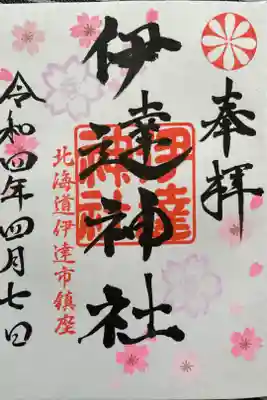 奉拝
伊達神社
伊達神社
北海道伊達市鎮座
令和四年四月七日